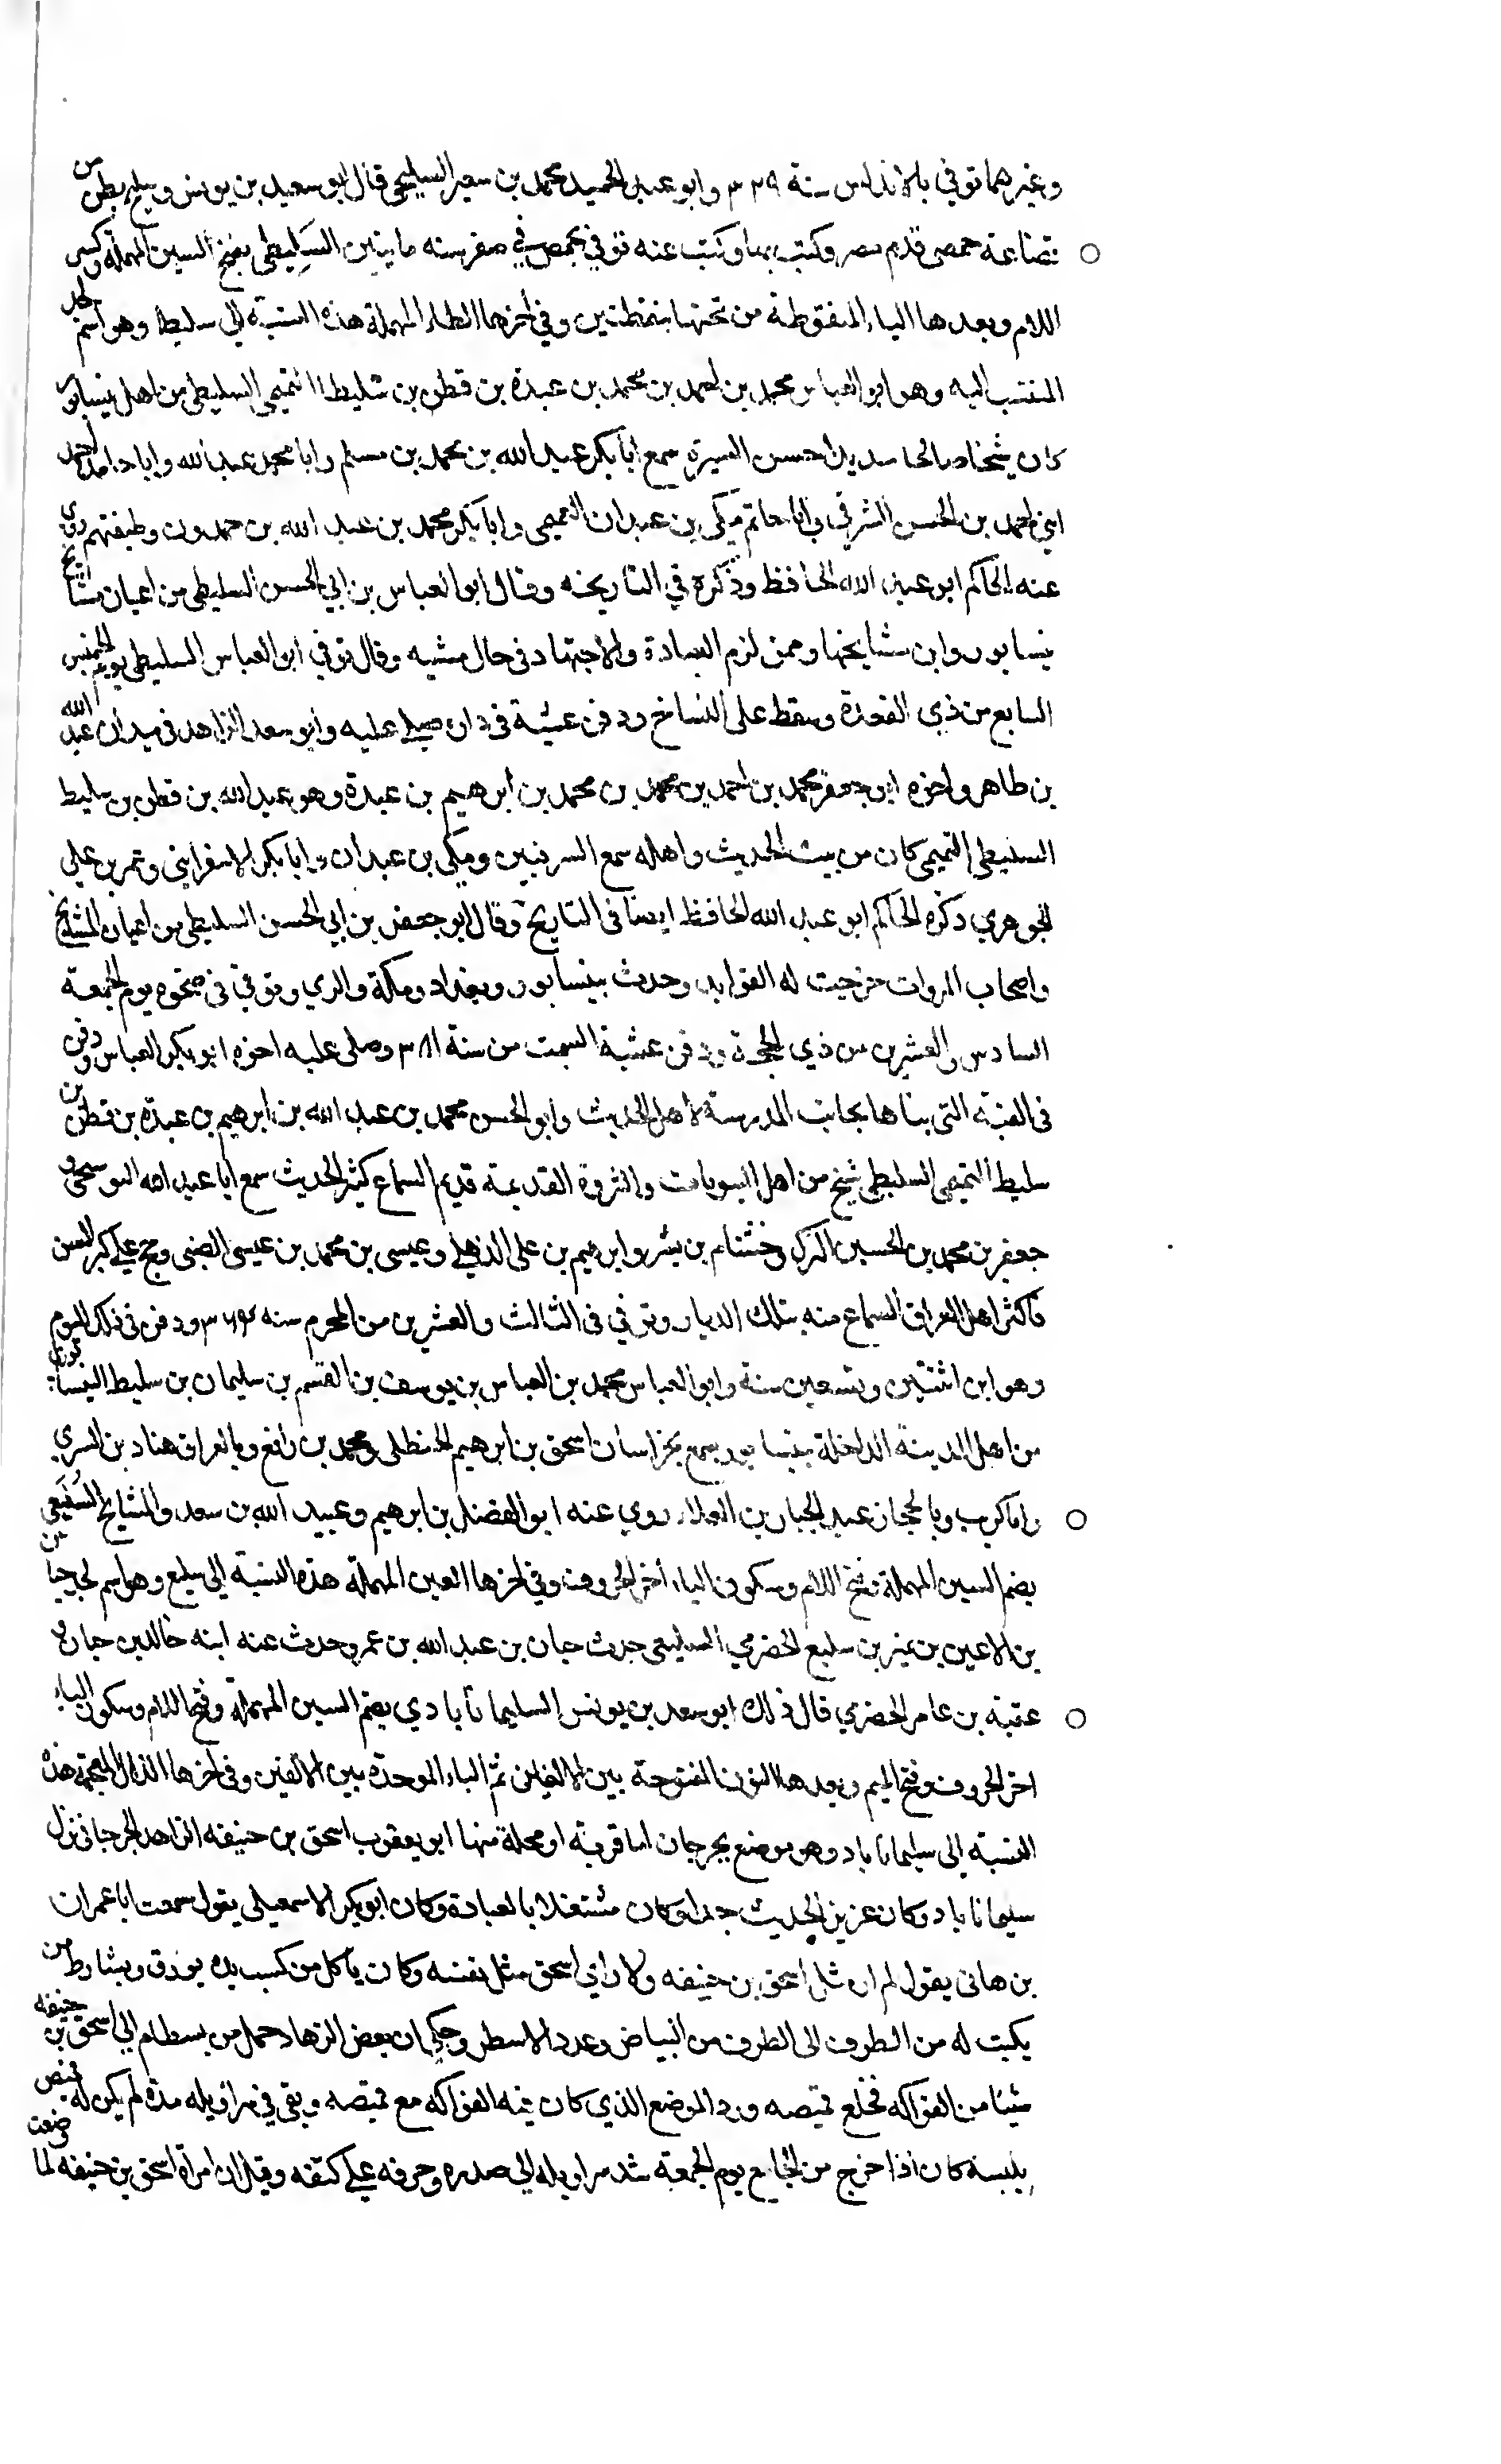 وغيرهما توفي بالاندلس سنة ٣٣٩ وابو عبد الحميد محمد بن سعيد السليحي قال ابو سعيد بن يونس وسليح بطن من
قضاعة حمصي قدم مصر وكتب بها وكتب عنه توفي بحمص في صفر سنه مايتين السَلِيطي بفتح السين المهملة وكسر
اللام وبعدها الياء المنقوطة من تحتها بنقطتين وفي اخرها الطاء المهملة هذه النسبة الي سليط وهو اسم لجد
المنتسب اليه وهو ابو العباس محمد بن احمد بن محمد بن عبدة بن قطن بن سليط التميمي السليطي من اهل نيسابور
كان شيخا صالحا سديدا حسن السيرة سمع ابا بكر عبد الله بن محمد بن مسلم وابا محمد عبد الله وابا حامد احمد
ابني محمد بن الحسن الشرقي وابا حاتم مكي بن عبدان التميمي وابا بكر محمد بن عبد الله بن حمدون وطبقتهم روي
عنه الحاكم ابو عبد الله الحافظ وذكره في التاريخه وقال ابو العباس بن ابي الحسن السليطي من اعيان مشايخ
نيسابور وابن مشايخها وممن لزم العبادة والاجتهاد في حال مشيبه وقال توفي ابو العباس السليطي يوم الخميس
السابع من ذي القعدة وسقط على النساخ ودفن عشية في داره صلى عليه وابو سعد الزاهد في ميدان عبد الله
بن طاهر واخوه ابو جعفر محمد بن احمد بن محمد بن محمد بن ابرهيم بن عبدة وهو عبد الله بن قطن بن سليط
السليطي التميمي كان من بيت الحديث واهله سمع السرقيين ومكي بن عبدان وابا بكر الاسفرايني وتمر بن علي
الجوهري ذكره الحاكم ابو عبد الله الحافظ ايضا في التاريخ وقال ابو جعفر بن ابي الحسن السليطي من اعيان المشايخ
واصحاب المروات خرجت له الفوايد وحدث بنيسابور وبغداد ومكة والري وتوفي في ضحوه يوم الجمعة
السادس والعشرين من ذي الحجة ودفن عشية السبت من سنة ٣٨١ وصلى عليه اخوه ابو بكر العباس ودفن
في القبة التي بناها بجانب المدرسة لاهل الحديث وابو الحسن محمد بن عبد الله بن ابرهيم بن عبدة بن قطن بن
سليط التميمي السليطي شيخ من اهل البيوتات والثروة القديمة قديم السماع كثير الحديث سمع ابا عبد الله البوسنجي و
جعفر بن محمد بن الحسين الترك وخشنام بن بشر وابرهيم بن علي الذهلي وعيسى بن محمد بن عيسى الضبي وحج علي كبر السن
فاكثر اهل العراق السماع منه بتلك الديار وتوفي في الثالث والعشرين من المحرم سنه ٣٦٤ ودفن في ذلك اليوم
وهو ابن اثنتين وتسعين سنة وابو العباس محمد بن العباس بن يوسف بن القسم بن سليمان بن سليط النيسابوري
من اهل المدينة الداخلة بنيسابور سمع بخراسان اسحق بن ابرهيم الحنظلي ومحمد بن رافع وبالعراق هناد بن السري
وابا كريب وبالحجاز عبد الجبار بن العلاء روي عنه ابو الفضل بن ابرهيم وعبيد الله بن سعد والمشايخ السُلَيعي
بضم السين المهملة وفتح اللام وسكون الياء اخر الحروف وفي اخرها العين المهملة هذه النسبة الي سليع وهو اسم لجد حيان
بن الاعين بن نمير بن سليع الحضرمي السليعي حدث حيان بن عبد الله بن عمرو حدث عنه ابنه خالد بن حيان و
عقبة بن عامر الحضرمي قال ذلك ابو سعد بن يونس السليماناباذي بضم السين المهملة وفتح اللام وسكون الياء
اخر الحروف وفتح الميم وبعدها النون المفتوحة بين الالفين ثم الباء الموحدة بين الالفين وفي اخرها الذال المعجمة هذه
النسبة الى سليماناباد وهو موضع بجرجان اما قرية او محلة منها ابو يعقوب اسحق بن حنيفه الزاهد الجرجاني نزل
سليماناباد وكان عزيز الحديث جدا وكان مشتغلا بالعبادة وكان ابو بكر الاسمعيلي يقول سمعت ابا عمران
بن هاني يقول لم ار مثل اسحق بن حنيفه ولا راي اسحق مثل نفسه وكان ياكل من كسب يده يورق ويشارط من
يكتب له من الطرف الى الطرف من البياض وعدد الاسطر وحكي ان بعض الزهاد حمل من بسطام الي اسحق بن حنيفه
شيئا من الفواكه فخلع قميصه ورد الموضع الذي كان فيه الفواكه مع قميصه وبقي في سراويله مدة لم يكن له قميص
يلبسه كان اذا خرج من الجامع يوم الجمعة شد سراويله الي صدره وحرفه علي كتفه وقيل ان امراة اسحق بن حنيفه لما وضعت